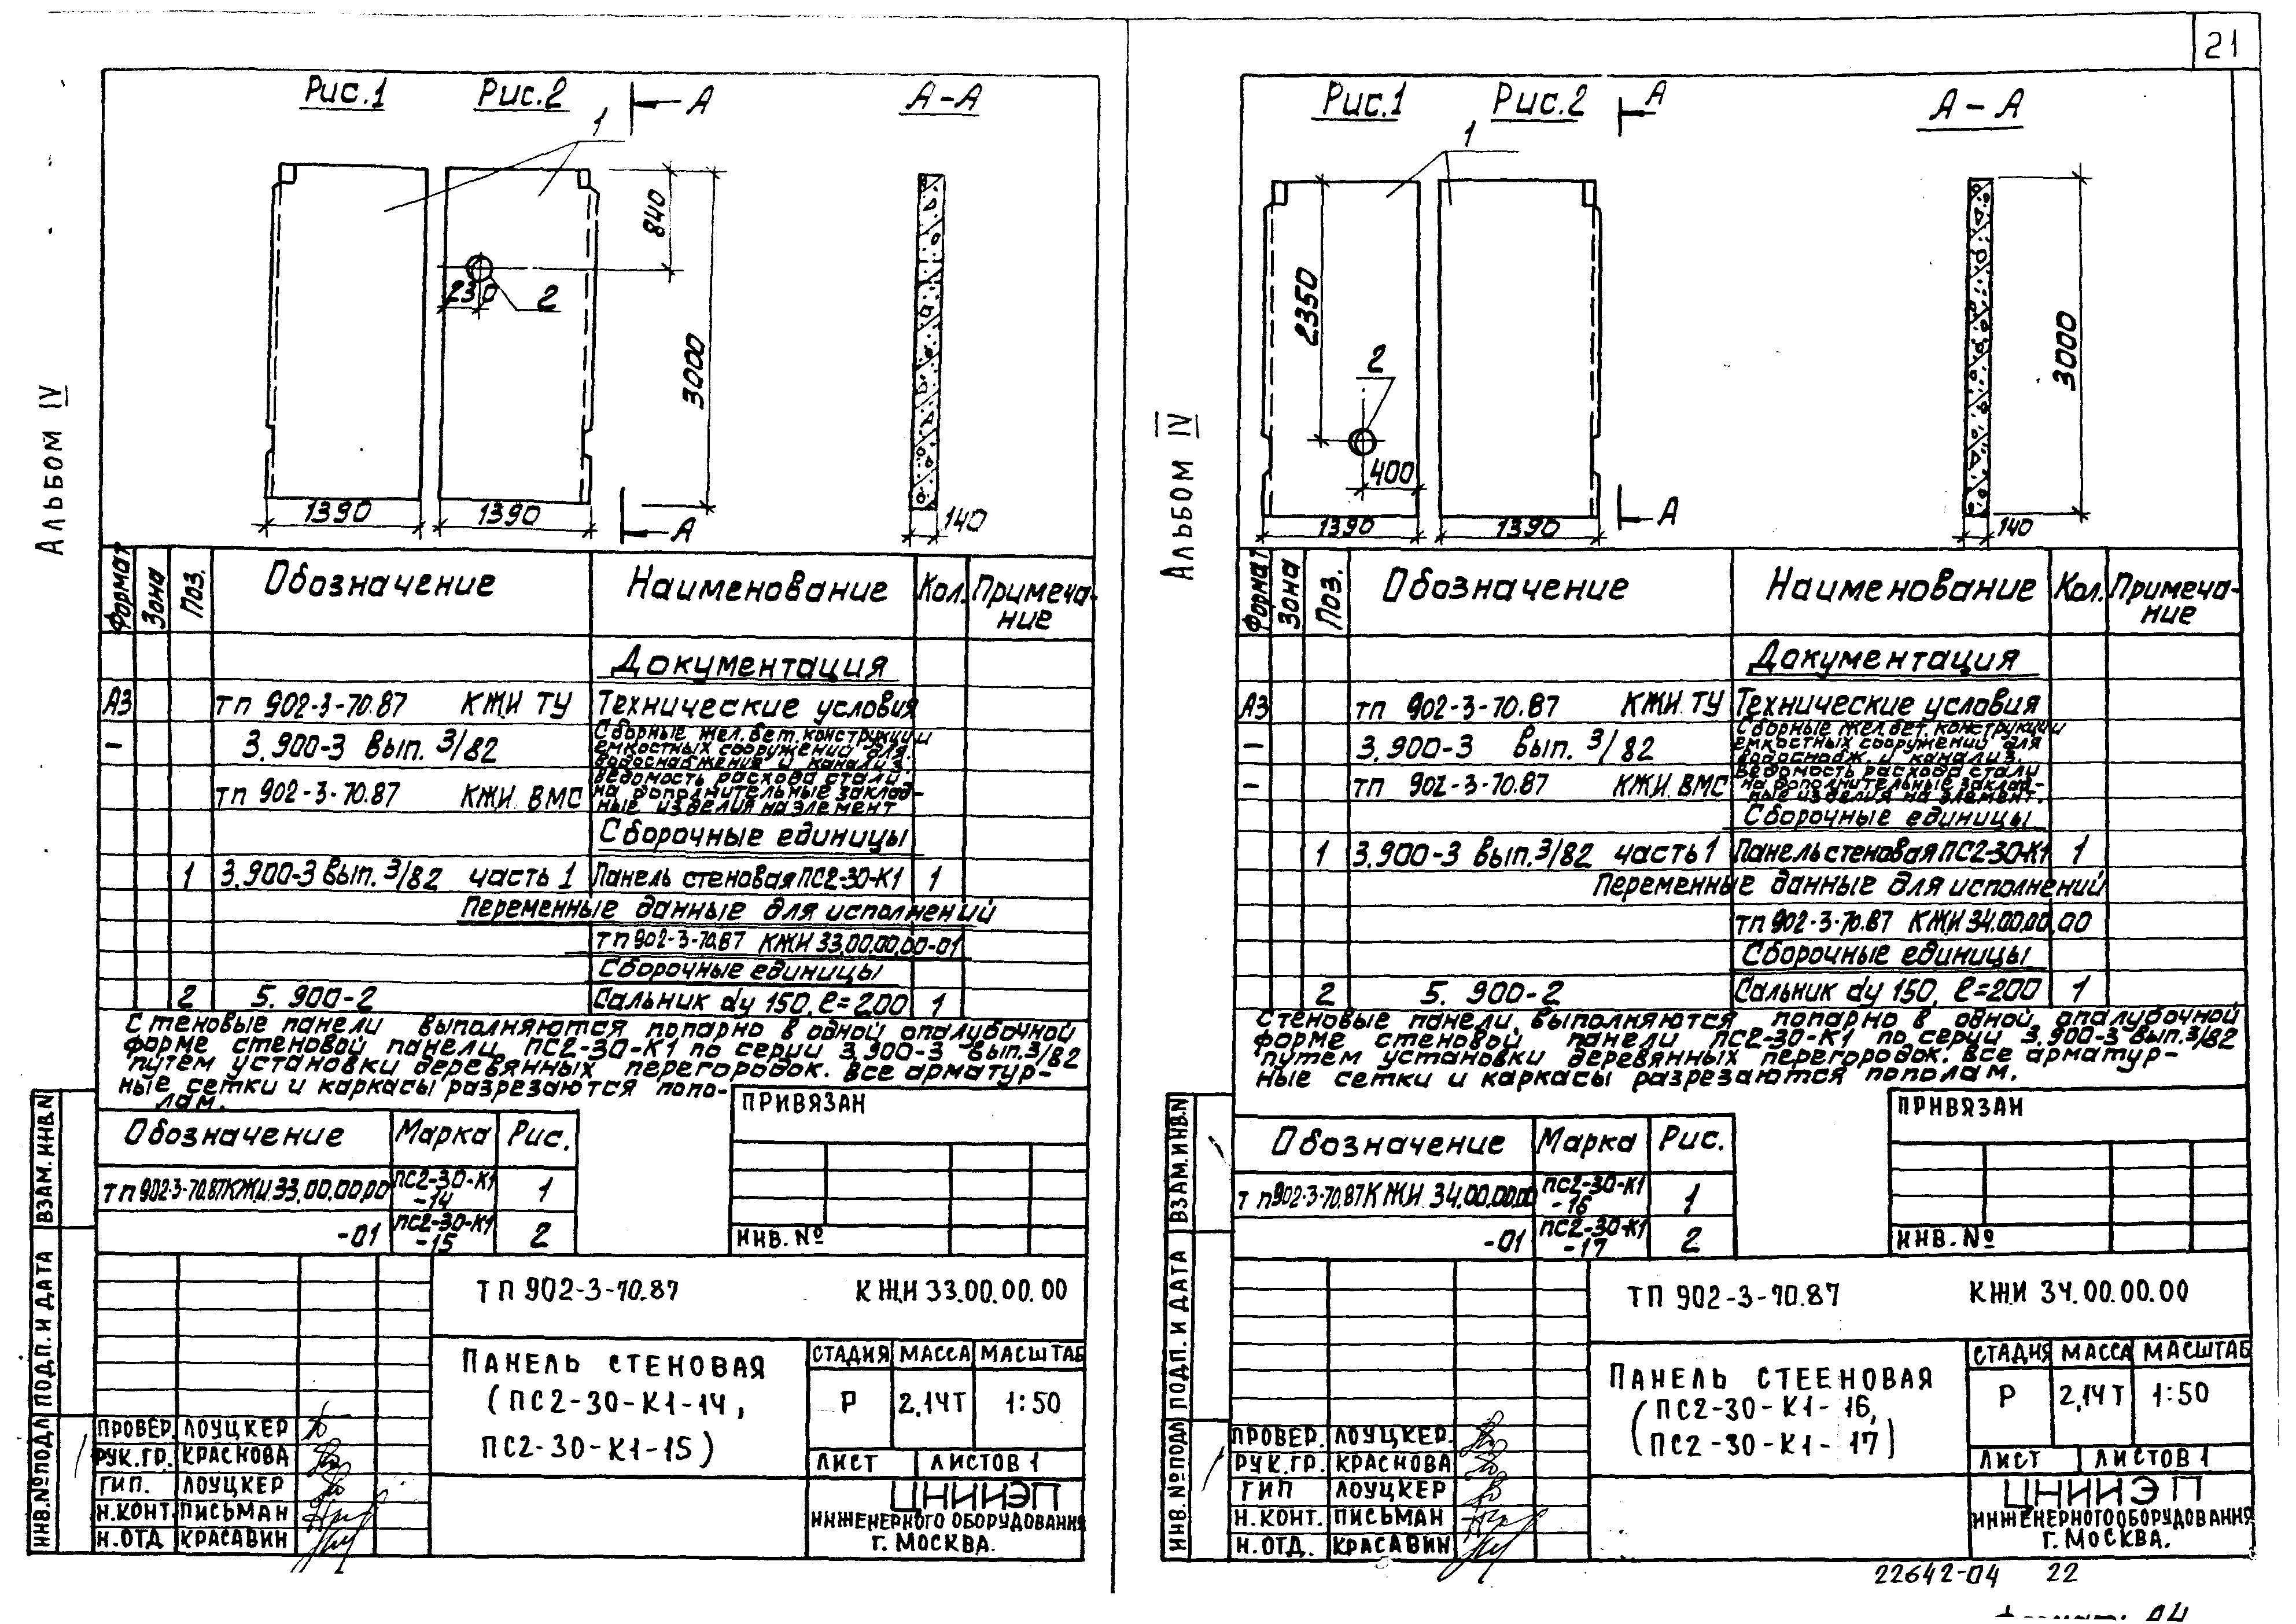 21
Альбом IV
Рис.1
Рис.2
А
А-А
1
840
230
2
3000
1390
1390
А
140
Формат
Зона
Поз.
Обозначение
Наименование
Кол.
Примеча-
ние
Документация
А3 тп 902-3-70.87 КЖИ ТУ Технические условия
- 3.900-3 вып. 3/82 Сборные жел.бет.конструкции
емкостных сооружений для
водоснабжения и канализ.
тп 902-3-70.87 КЖИ ВМС Ведомость расхода стали
на дополнительные заклад-
ные изделия на элемент
Сборочные единицы
1 3.900-3 вып. 3/82 часть 1 Панель стеновая ПС2-30-К1 1
Переменные данные для исполнений
тп 902-3-70.87 КЖИ 33.00.00.00-01
Сборочные единицы
2 5.900-2 Сальник dу 150, ℓ=200 1
Стеновые панели выполняются попарно в одной опалубочной
форме стеновой панели ПС2-30-К1 по серии 3.900-3 вып.3/82
путем установки деревянных перегородок. Все арматур-
ные сетки и каркасы разрезаются попо-
лам.
Обозначение Марка Рис.
тп 902-3-70.87 КЖИ 33.00.00.00 ПС2-30-К1
-14 1
-01 ПС2-30-К1
-15 2
ПРИВЯЗАН
ИНВ. №
ВЗАМ. ИНВ.N
ПОДП. И ДАТА
ИНВ.№ПОДЛ
ТП 902-3-70.87 КЖИ 33.00.00.00
ПАНЕЛЬ СТЕНОВАЯ
(ПС2-30-К1-14,
ПС2-30-К1-15)
СТАДИЯ МАССА МАСШТАБ
Р 2,14Т 1:50
ЛИСТ ЛИСТОВ 1
ПРОВЕР. ЛОУЦКЕР
РУК.ГР. КРАСНОВА
ГИП. ЛОУЦКЕР
Н.КОНТ. ПИСЬМАН
Н.ОТД КРАСАВИН
ЦНИИЭП
ИНЖЕНЕРНОГО ОБОРУДОВАНИЯ
Г. МОСКВА.
Альбом IV
Рис.1
Рис.2
А
А-А
1
2350
2
400
3000
1390
1390
А
140
Формат
Зона
Поз.
Обозначение
Наименование
Кол.
Примеча-
ние
Документация
А3 тп 902-3-70.87 КЖИ ТУ Технические условия
- 3.900-3 вып. 3/82 Сборные жел.бет. конструкции
емкостных сооружений для
водоснабж. и канализ.
- тп 902-3-70.87 КЖИ ВМС Ведомость расхода стали
на дополнительные заклад-
ные изделия на элемент.
Сборочные единицы
1 3.900-3 вып.3/82 часть 1 Панель стеновая ПС2-30-К1 1
Переменные данные для исполнений
тп 902-3-70.87 КЖИ 34.00.00.00
Сборочные единицы
2 5.900-2 Сальник dу 150, ℓ=200 1
Стеновые панели выполняются попарно в одной опалубочной
форме стеновой панели ПС2-30-К1 по серии 3.900-3 вып.3/82
путем установки деревянных перегородок. Все арматур-
ные сетки и каркасы разрезаются пополам.
Обозначение Марка Рис.
тп 902-3-70.87 КЖИ 34.00.00.00 ПС2-30-К1
-16 1
-01 ПС2-30-К1
-17 2
ПРИВЯЗАН
ИНВ. №
ВЗАМ.ИНВ.N
ПОДП. И ДАТА
ИНВ.№ПОДЛ
ТП 902-3-70.87 КЖИ 34.00.00.00
ПАНЕЛЬ СТЕЕНОВАЯ
(ПС2-30-К1-16,
ПС2-30-К1-17)
СТАДИЯ МАССА МАСШТАБ
Р 2,14Т 1:50
ЛИСТ ЛИСТОВ 1
ПРОВЕР. ЛОУЦКЕР.
РУК.ГР. КРАСНОВА
ГИП ЛОУЦКЕР
Н.КОНТ. ПИСЬМАН
Н.ОТД. КРАСАВИН
ЦНИИЭП
ИНЖЕНЕРНОГО ОБОРУДОВАНИЯ
Г. МОСКВА.
22642-04 22